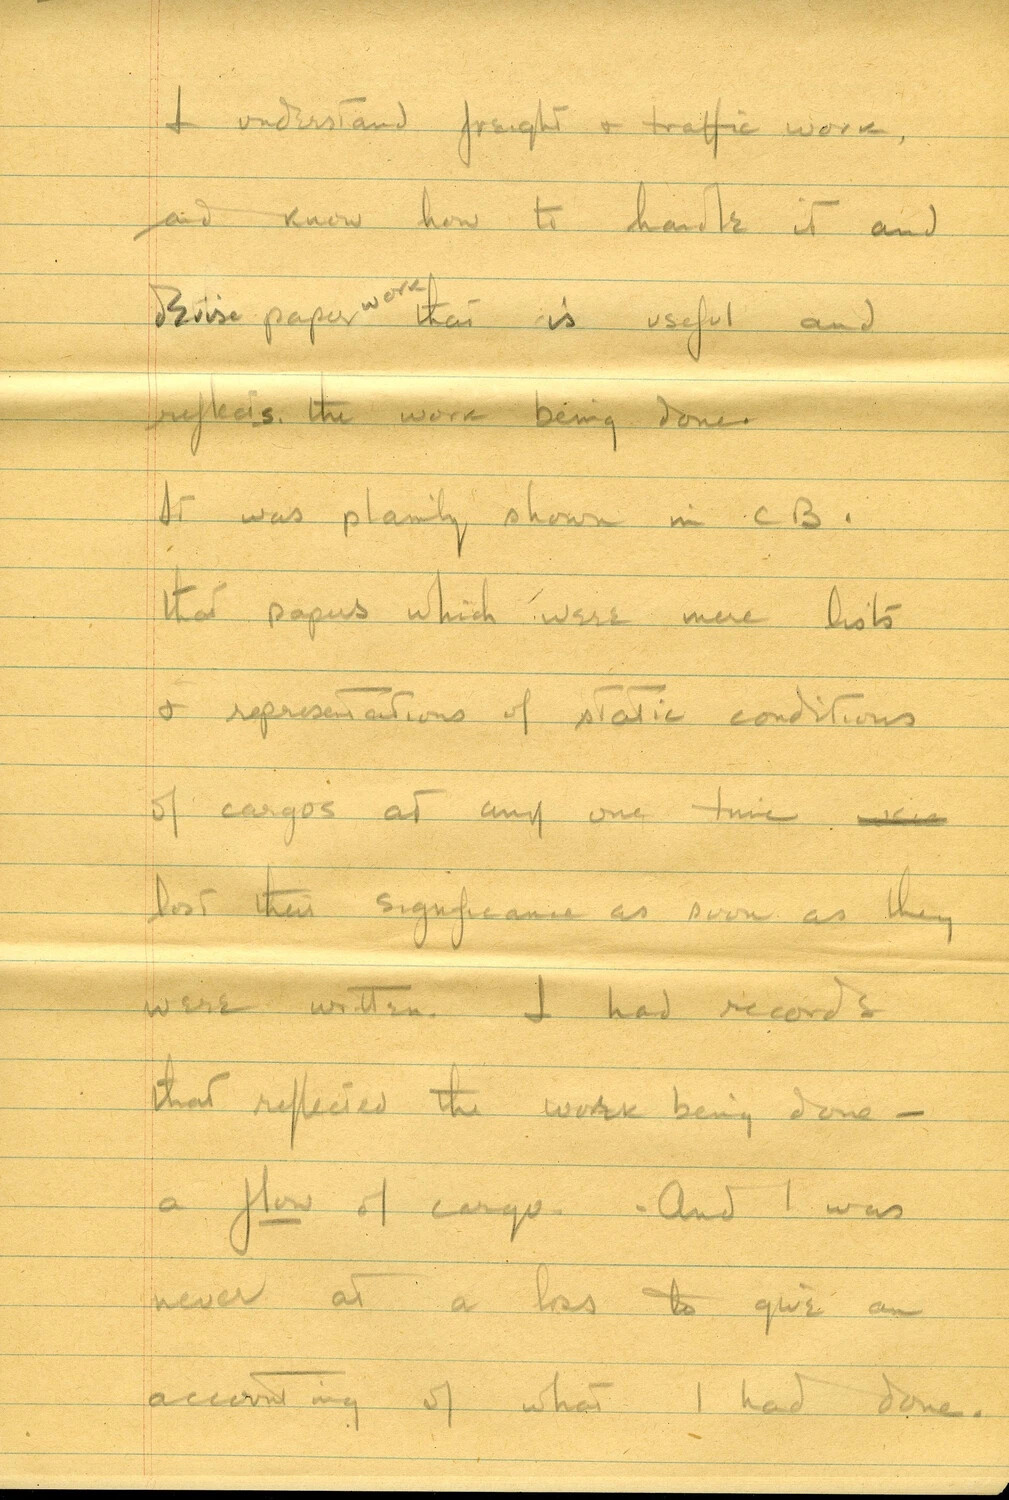 I understand freight & traffic work,
and know how to handle it and
devise paper work that is useful and
reflects the work being done.
It was plainly shown in CB.
that papers which were mere lists
& representations of static conditions
of cargos at any one time
lost their significance as soon as they
were written. I had records
that reflected the work being done -
a flow of cargo. - And I was
never at a loss to give an
accounting of what I had done.